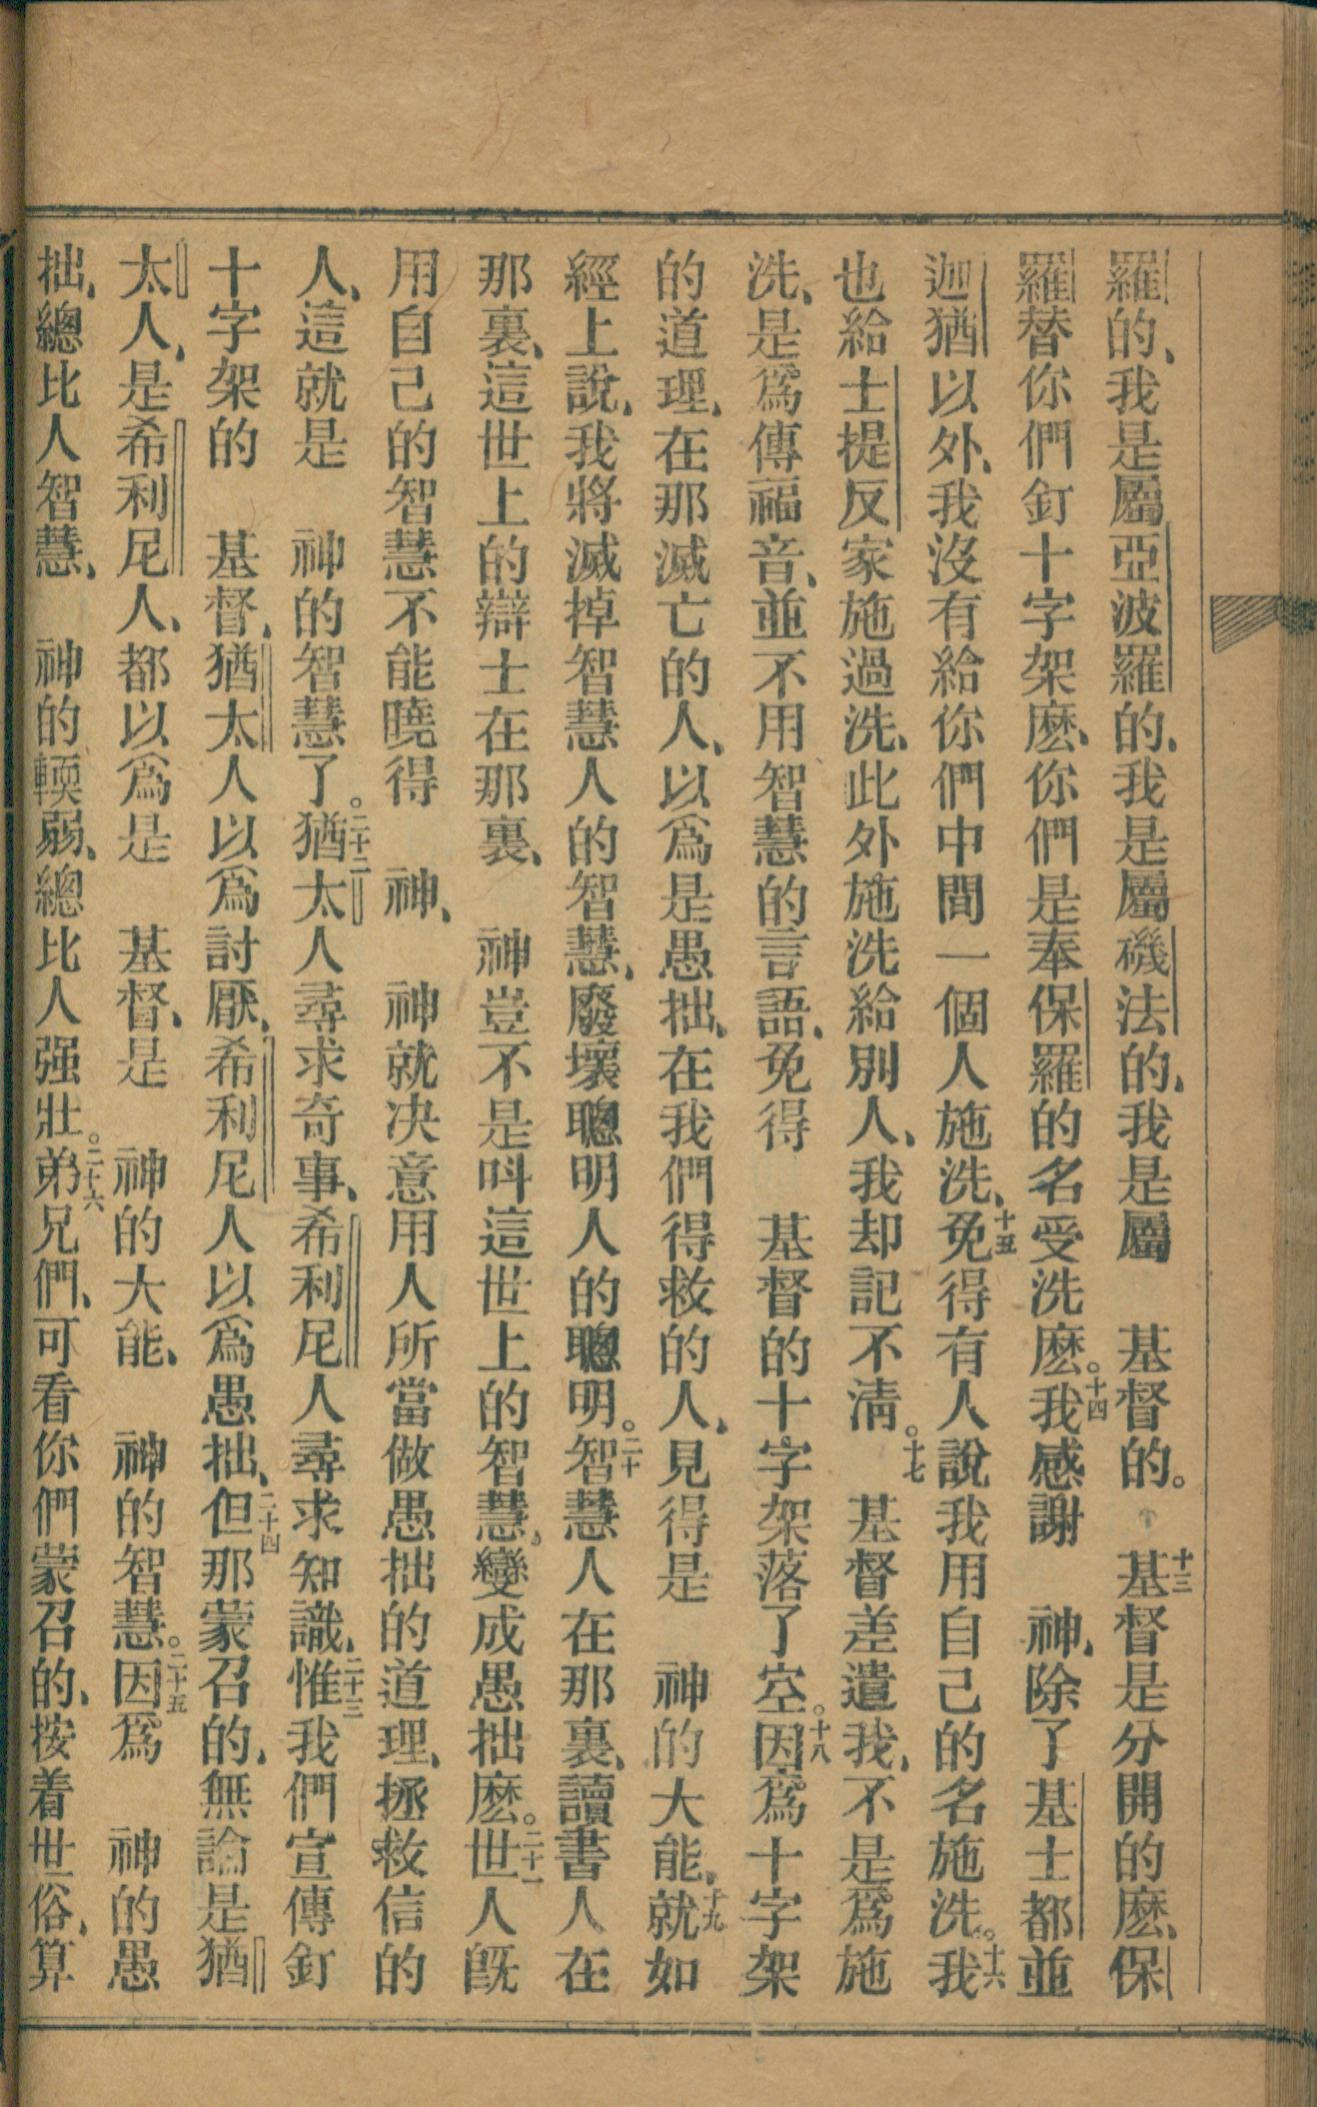 羅的、我是屬亞波羅的、我是屬磯法的、我是屬　基督的。十三基督是分開的麽、保
羅替你們釘十字架麽、你們是奉保羅的名受洗麽。十四我感謝　神、除了基士都並
迦猶以外、我沒有給你們中間一個人施洗、十五免得有人說我用自己的名施洗。十六我
也給士提反家施過洗、此外施洗給別人、我却記不淸。十七　基督差遣我、不是爲施
洗、是爲傳福音、並不用智慧的言語、免得　基督的十字架落了空。十八因爲十字架
的道理、在那滅亡的人、以爲是愚拙、在我們得救的人、見得是　神的大能、十九就如
經上說、我將滅掉智慧人的智慧、廢壞聰明人的聰明。二十智慧人在那裏、讀書人在
那裏、這世上的辯士在那裏、　神豈不是呌這世上的智慧、變成愚拙麽。二十一世人旣
用自己的智慧不能曉得　神、　神就決意用人所當做愚拙的道理、拯救信的
人、這就是　神的智慧了。二十二猶太人尋求奇事、希利尼人尋求知識、二十三惟我們宣傳釘
十字架的　基督、猶太人以爲討厭、希利尼人以爲愚拙、二十四但那蒙召的、無論是猶
太人、是希利尼人、都以爲是　基督、是　神的大能、　神的智慧。二十五因爲　神的愚
拙、總比人智慧、　神的輭弱、總比人强壯。二十六弟兄們、可看你們蒙召的、按着世俗、算